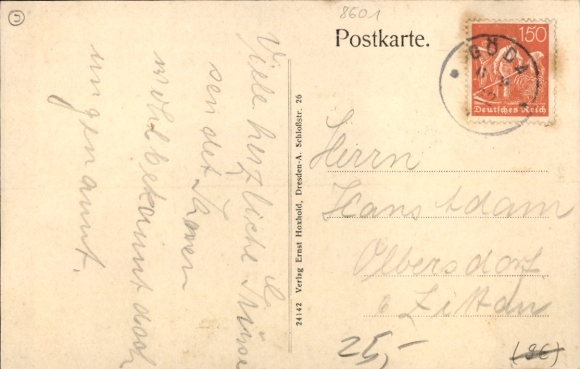 U
8601
Postkarte.
150
GÖDA
Deutsches Reich
Viele herzliche Grüsse
sendet Ihnen
wohlbekannt doch
ungenannt.
24142 Verlag Ernst Hoxhold, Dresden-A. Schloßstr. 26
Herrn
Hans Adam
Olbersdorf
b Zittau
25,-
(9€)